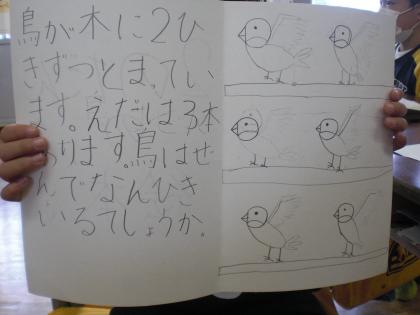 鳥が木に2ひ
きずつとまってい
ます。えだは3本
あります。鳥はぜ
んでなんひき
いるでしょうか。